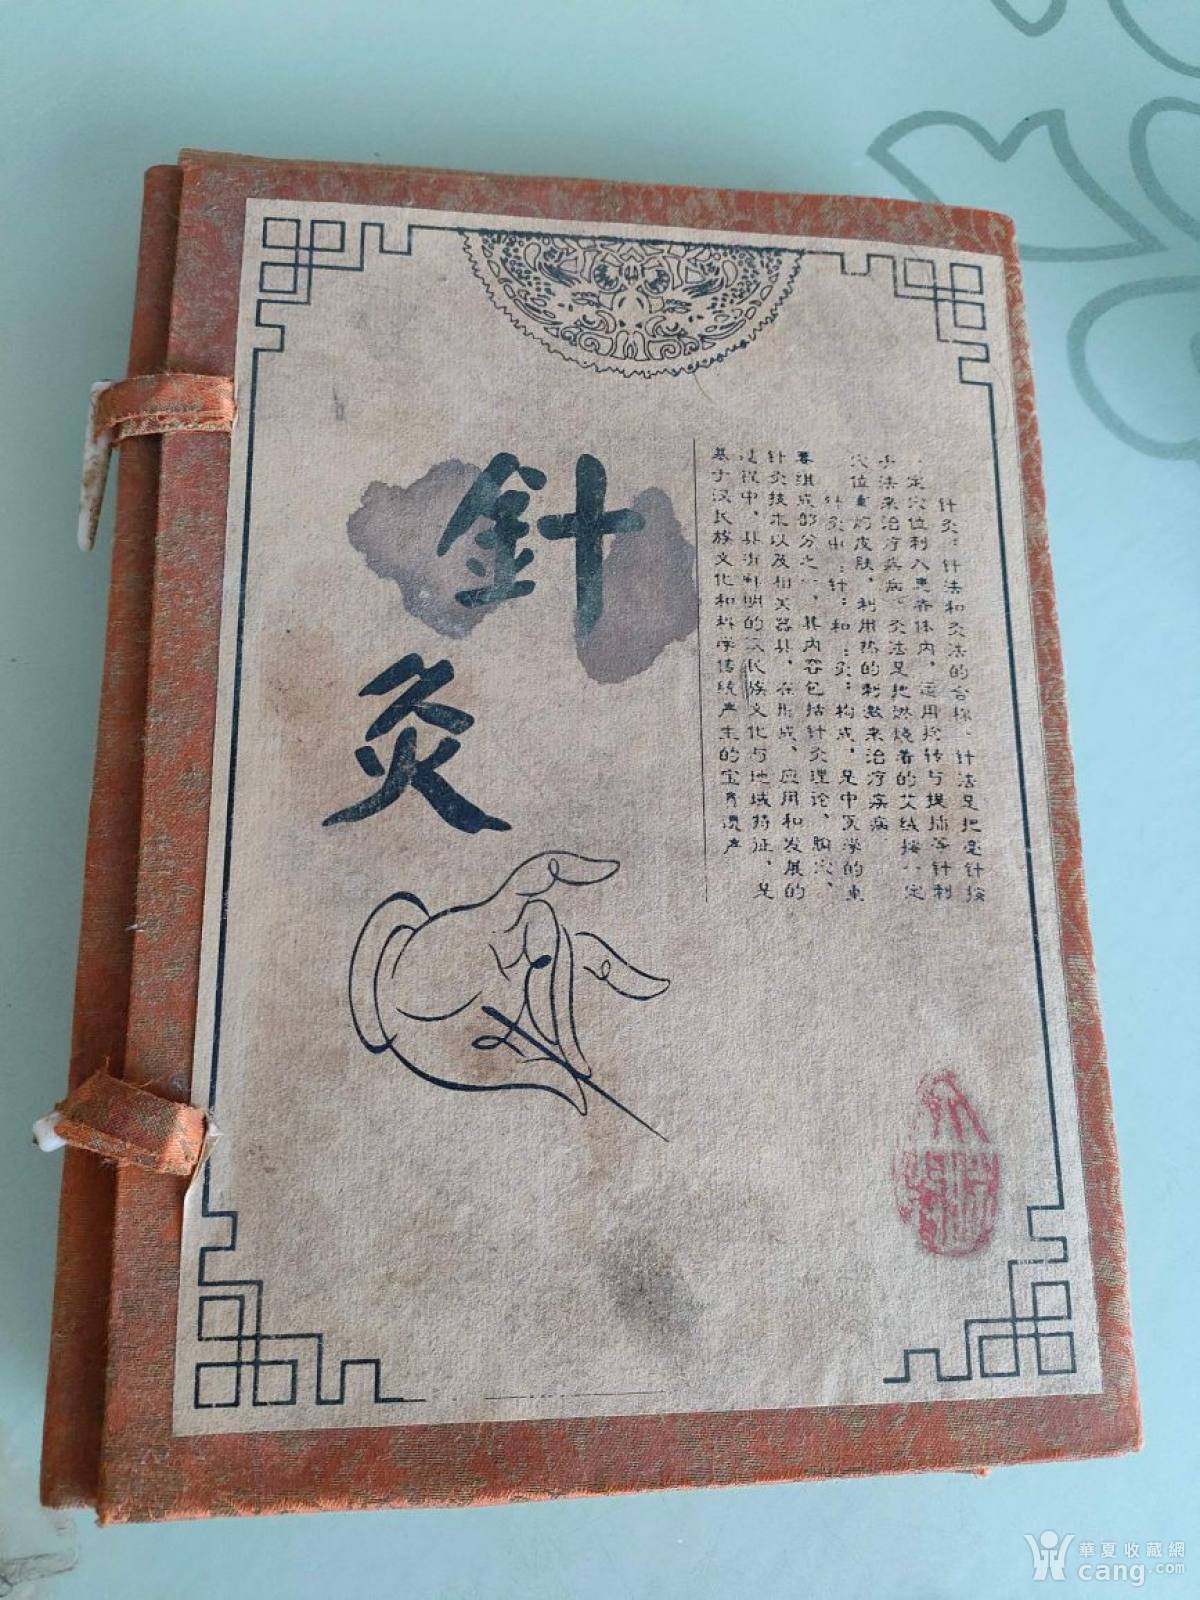 針
灸
针灸:针法和灸法的合称。针法是把毫针按
一定穴位刺入患者体内,运用捻转与提插等针刺
手法来治疗疾病。灸法是把燃烧着的艾绒按一定
穴位熏灼皮肤,利用热的刺激来治疗疾病。
针灸由:针:和:灸:构成,是中医学的重
要组成部分之一,其内容包括针灸理论、腧穴、
针灸技术以及相关器具,在形成、应用和发展的
过程中,具有鲜明的汉民族文化与地域特征,是
基于汉民族文化和科学传统产生的宝贵遗产
華夏收藏網
cang.com